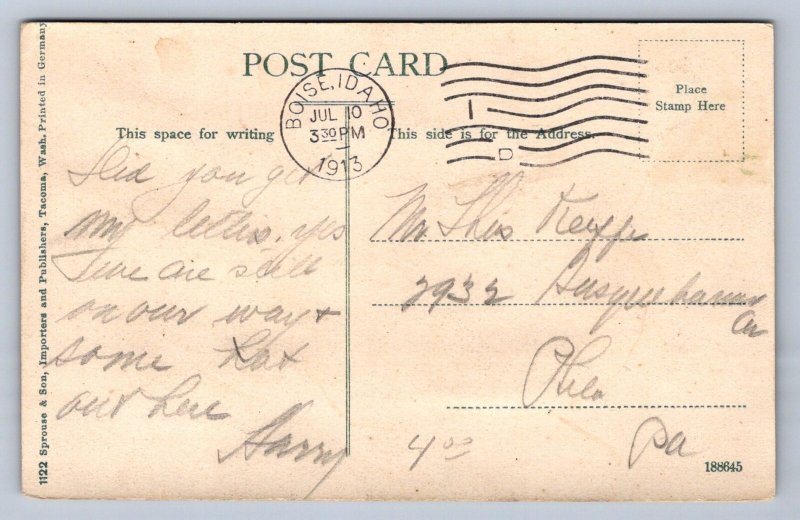 1122 Sprouse & Son, Importers and Publishers, Tacoma, Wash. Printed in Germany
POST CARD
Place
Stamp Here
BOISE, IDAHO
JUL 10
3 30 PM
1913
1
D
This space for writing
This side is for the Address.
Did you get
my letter, yes
we are still
on our way &
some hot
out here
Harry
Mr
2932 Susquehanna
Av
Phila
Pa
4 00
188645